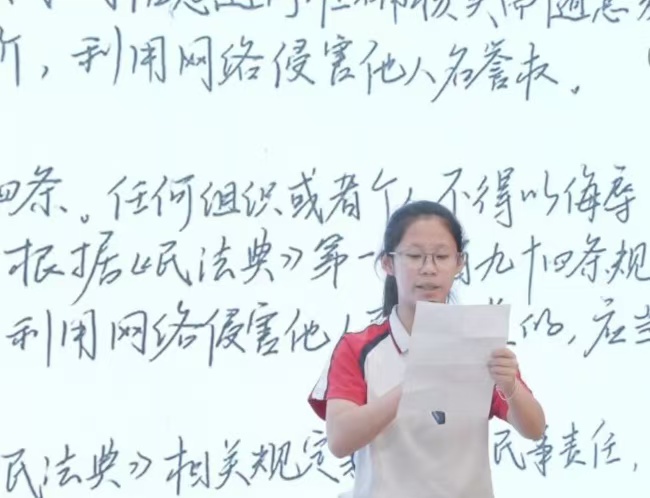 ，利用网络侵害他人名誉权。
四条。任何组织或者个人不得以侮辱
根据《民法典》第一 九十四条规
利用网络侵害他人 的，应当
民法典》相关规定 民事责任，